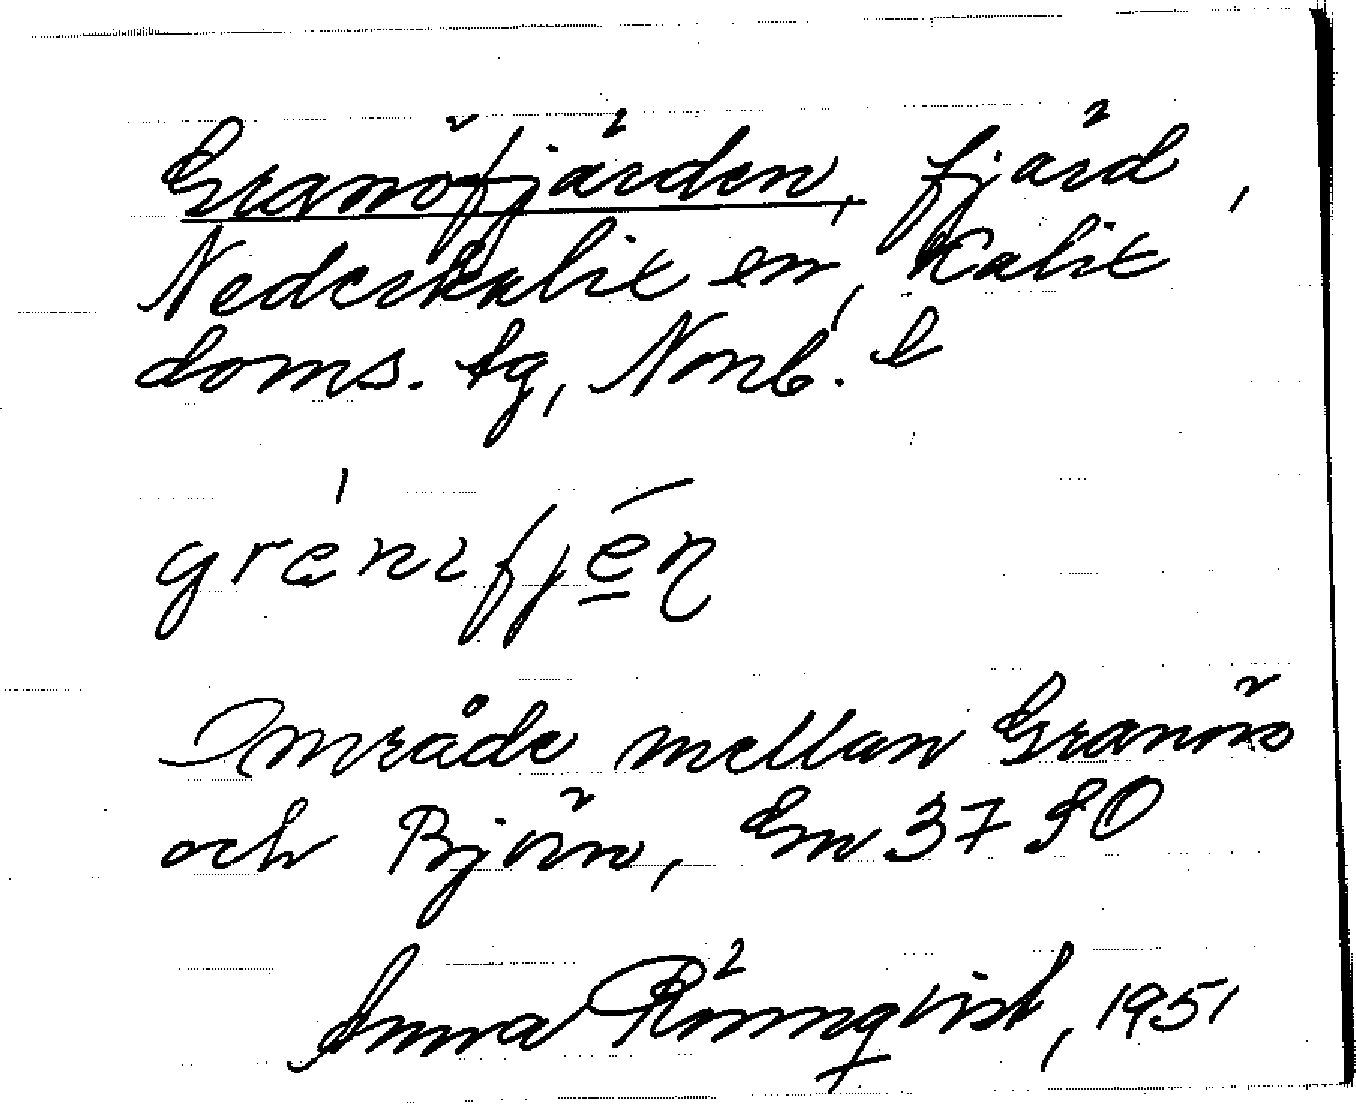 Granöfjärden, fjärd,
Nederkalix sn, Kalix
doms. tg, Norrb. l
grènıfjén
Område mellan Granön
och Björn, Gm 37 80
Anna Rönnqvist, 1951